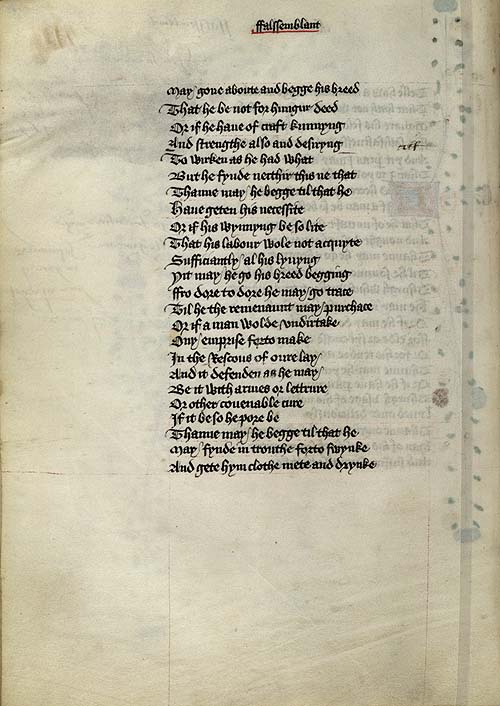 ffalssemblant
May gone aboute and begge his breed
That he be not for hungur deed
Or if he haue of craft kunnyng
And strengthe also and desiryng
To wirken as he had what
But he fynde neithir this ne that
Thanne may he begge til that he
Haue geten his necessite
Or if his wynnyng be so lite
That his labour wole not acquyte
Sufficiantly al his lyuyng
Yit may he go his breed begging
ffro dore to dore he may go trace
Til he the remenaunt may purchace
Or if a man wolde vndirtake
Ony emprise forto make
In the Rescous of oure lay
And it defenden as he may
Be it with armes or lettrure
Or other couenable cure
If it be so he pore be
Thanne may he begge til that he
May fynde in trouthe forto swynke
And gete hym clothe mete and drynke